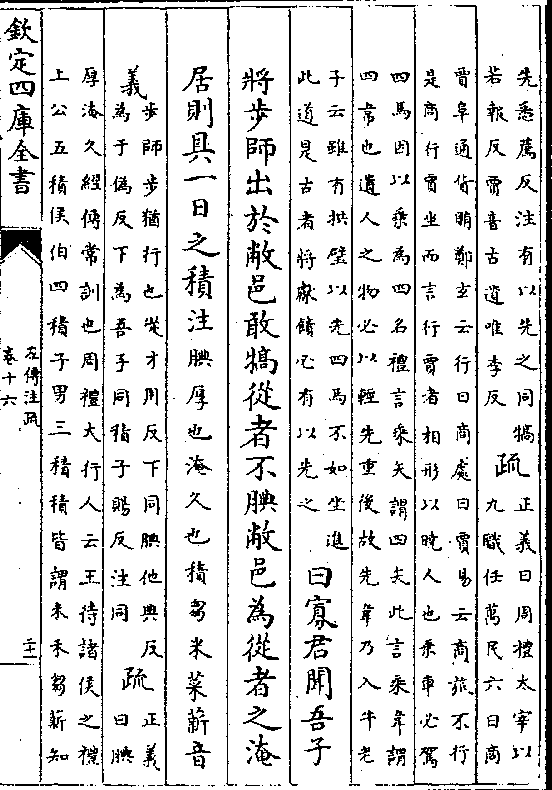 先悉薦反注有以先之同犒
若報反賈音古遺唯季反
疏
正義曰周禮太宰以
九職任萬民六曰商
賈阜通貨賄鄭玄云行曰商處曰賈易云商旅不行
是商行賈坐而言行賈者相形以曉人也乘車必駕
四馬因以乘為四名禮言乘矢謂四矢此言乘韋謂
四韋也遺人之物必以輕先重後故先韋乃入牛老
子云雖有拱璧以先四馬不如坐進
此道是古者將獻饋必有以先之
曰寡君聞吾子
將步師出於敝邑敢犒從者不腆敝邑為從者之淹
居則具一日之積注腆厚也淹久也積芻米菜薪音
義
步師步猶行也從才用反下同腆他典反
為于偽反下為吾子同積子賜反注同
疏
正義
曰腆
厚淹久經傳常訓也周禮大行人云王待諸侯之禮
上公五積侯伯四積子男三積積皆謂米禾芻薪知
欽定四庫全書
左傳注疏
卷十六
二十一